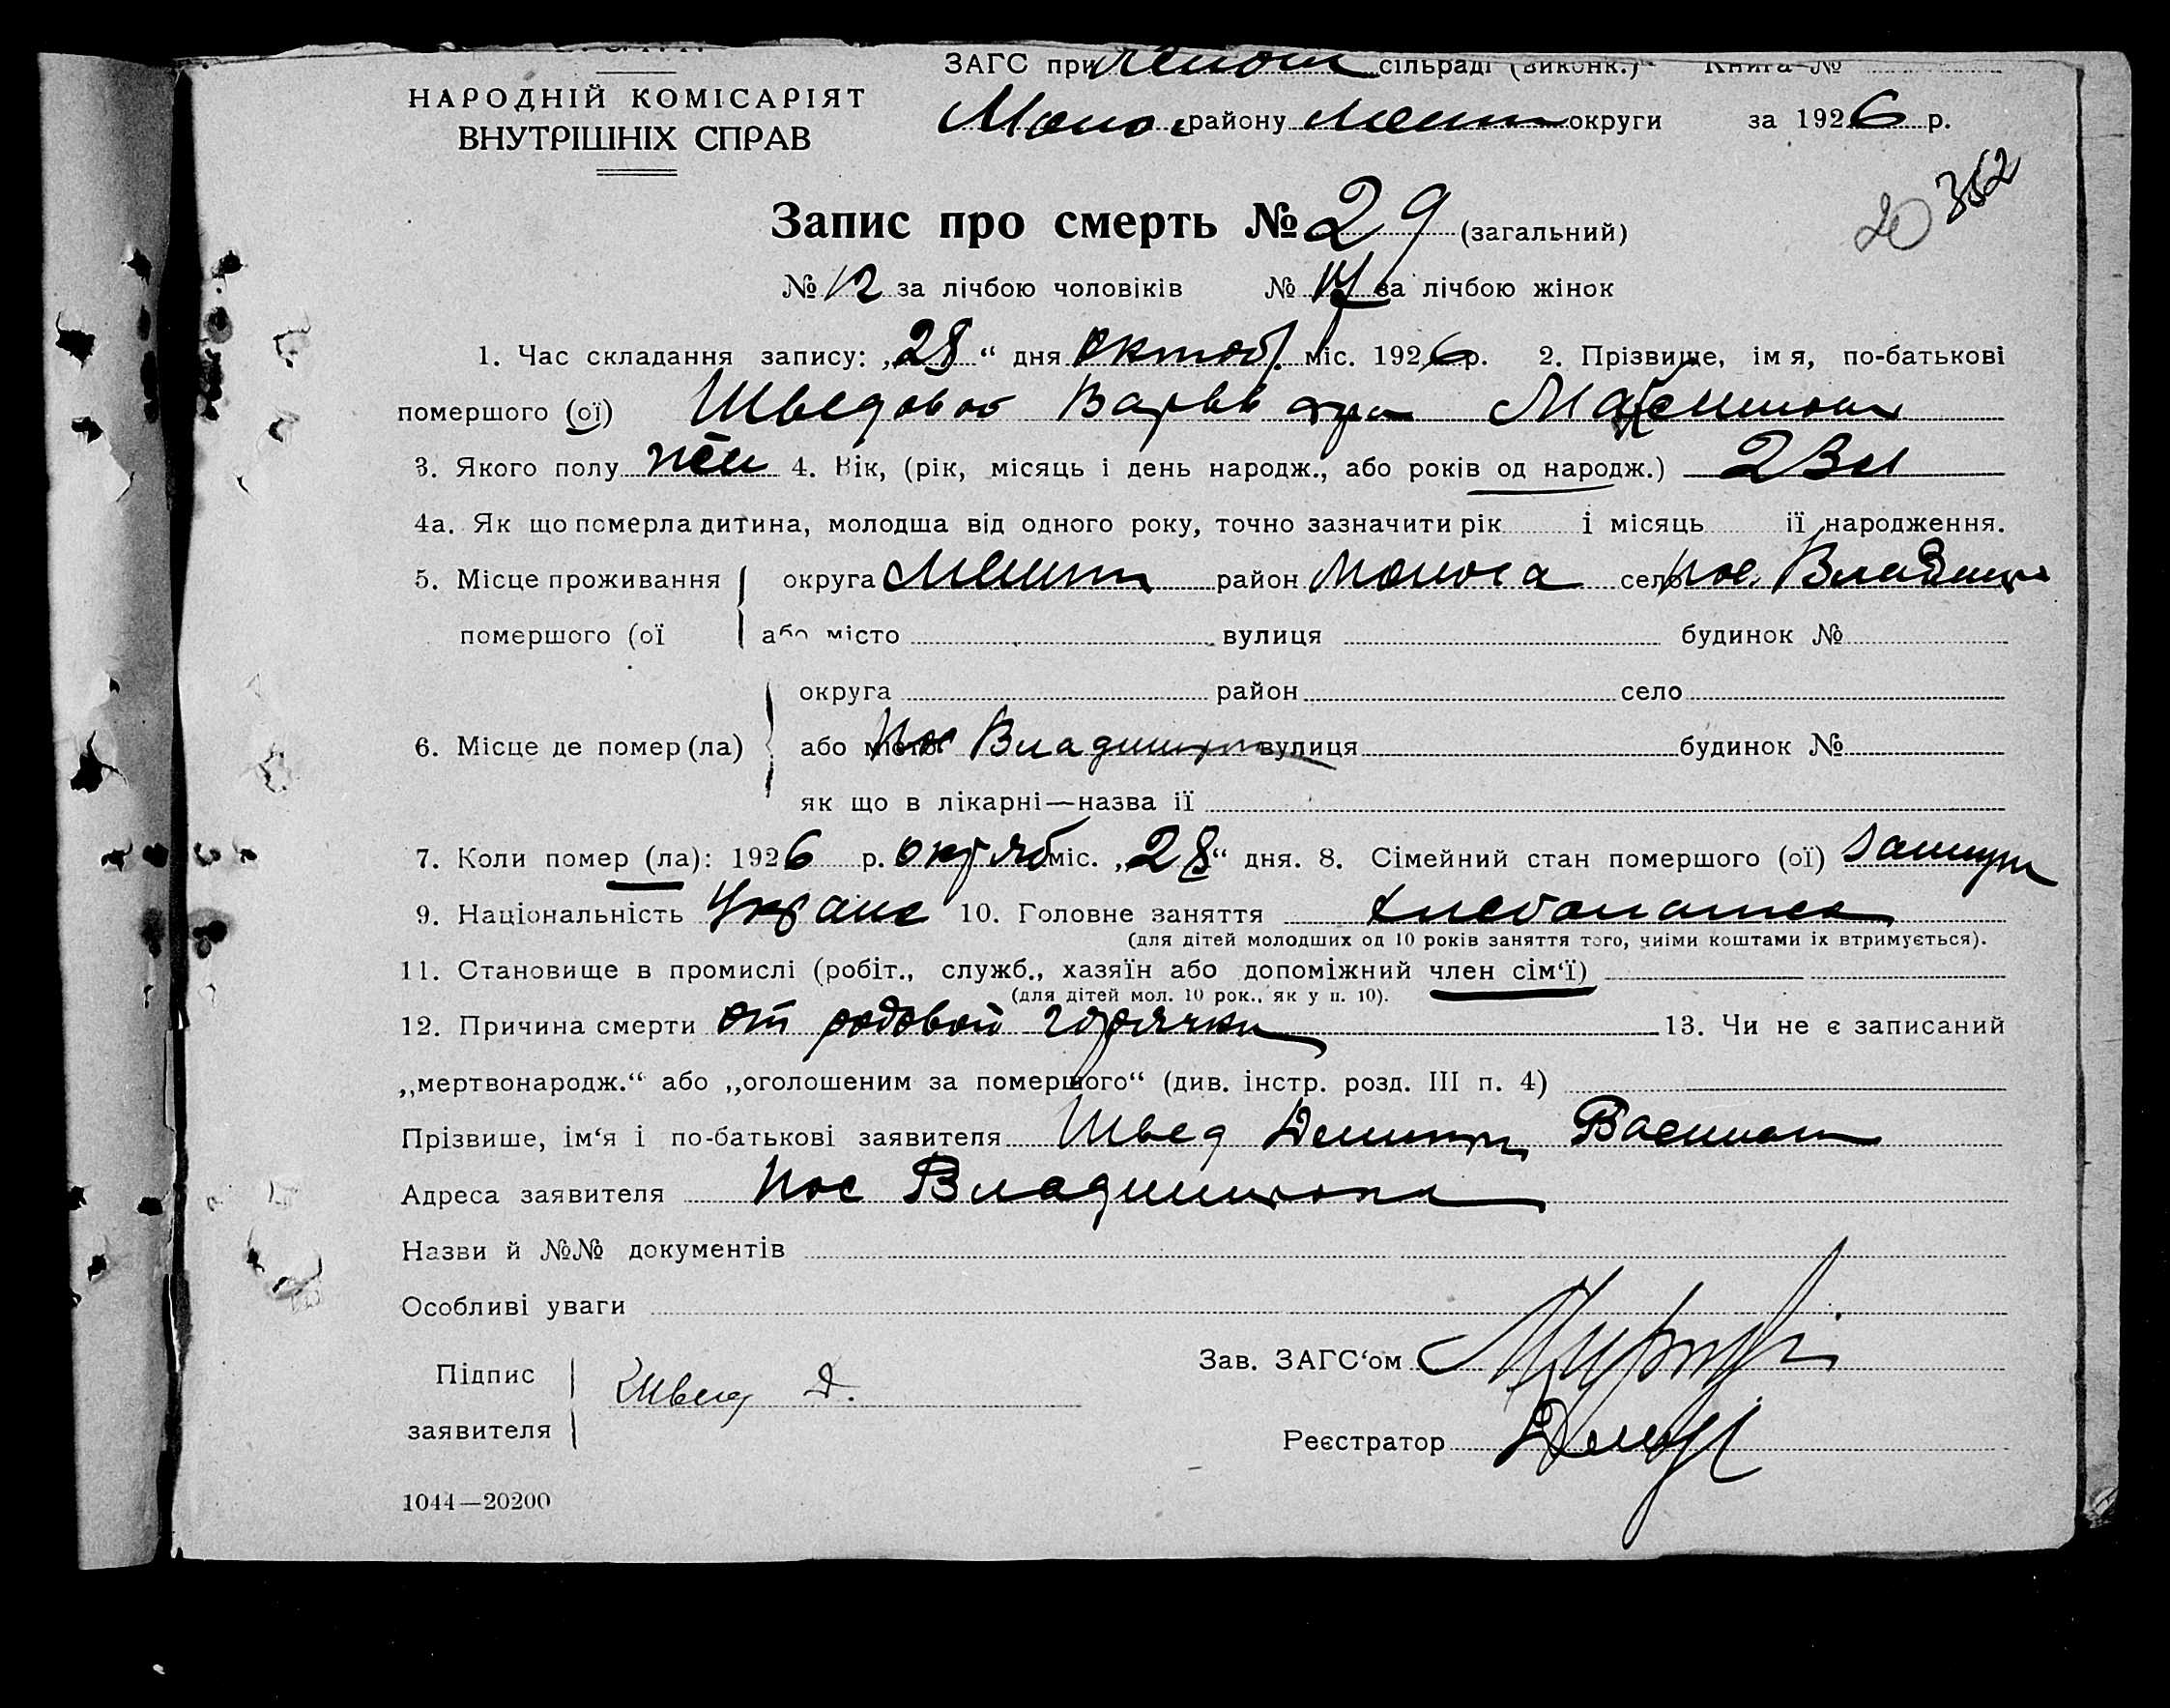 ЗАГС при сільраді (виконк.) Книга №
НАРОДНІЙ КОМІСАРІЯТ
ВНУТРІШНІХ СПРАВ
району округи за 1926 р.
362
20
Запис про смерть № 29 (загальний)
№ 12 за лічбою чоловіків № 17 за лічбою жінок
1. Час складання запису: „28“ дня октяб. міс. 1926 р. 2. Прізвище, імя, по-батькові
помершого (ої) Шведова Варвара
3. Якого полу жен 4. Вік, (рік, місяць і день народж., або років од народж.) 23
4а. Як що померла дитина, молодша від одного року, точно зазначити рік і місяць її народження.
5. Місце проживання округа район село пос.
помершого (ої або місто вулиця будинок №
округа район село
6. Місце де помер (ла) або місто пос вулиця будинок №
як що в лікарні—назва її
7. Коли помер (ла): 1926 р. октяб міс. „28“ дня. 8. Сімейний стан помершого (ої)
9. Національність Украине 10. Головне заняття
(для дітей молодших од 10 років заняття того, чиїми коштами їх втримується).
11. Становище в промислі (робіт., служб., хазяїн або допоміжний член сім‘ї)
(для дітей мол. 10 рок., як у п. 10).
12. Причина смерти от родовой горячки 13. Чи не є записаний
„мертвонародж.“ або „оголошеним за помершого“ (див. інстр. розд. III п. 4)
Прізвише, ім‘я і по-батькові заявителя Швед
Адреса заявителя пос
Назви й №№ документів
Особливі уваги
Підпис
заявителя Швед Д.
Зав. ЗАГС‘ом
Реєстратор
1044—20200